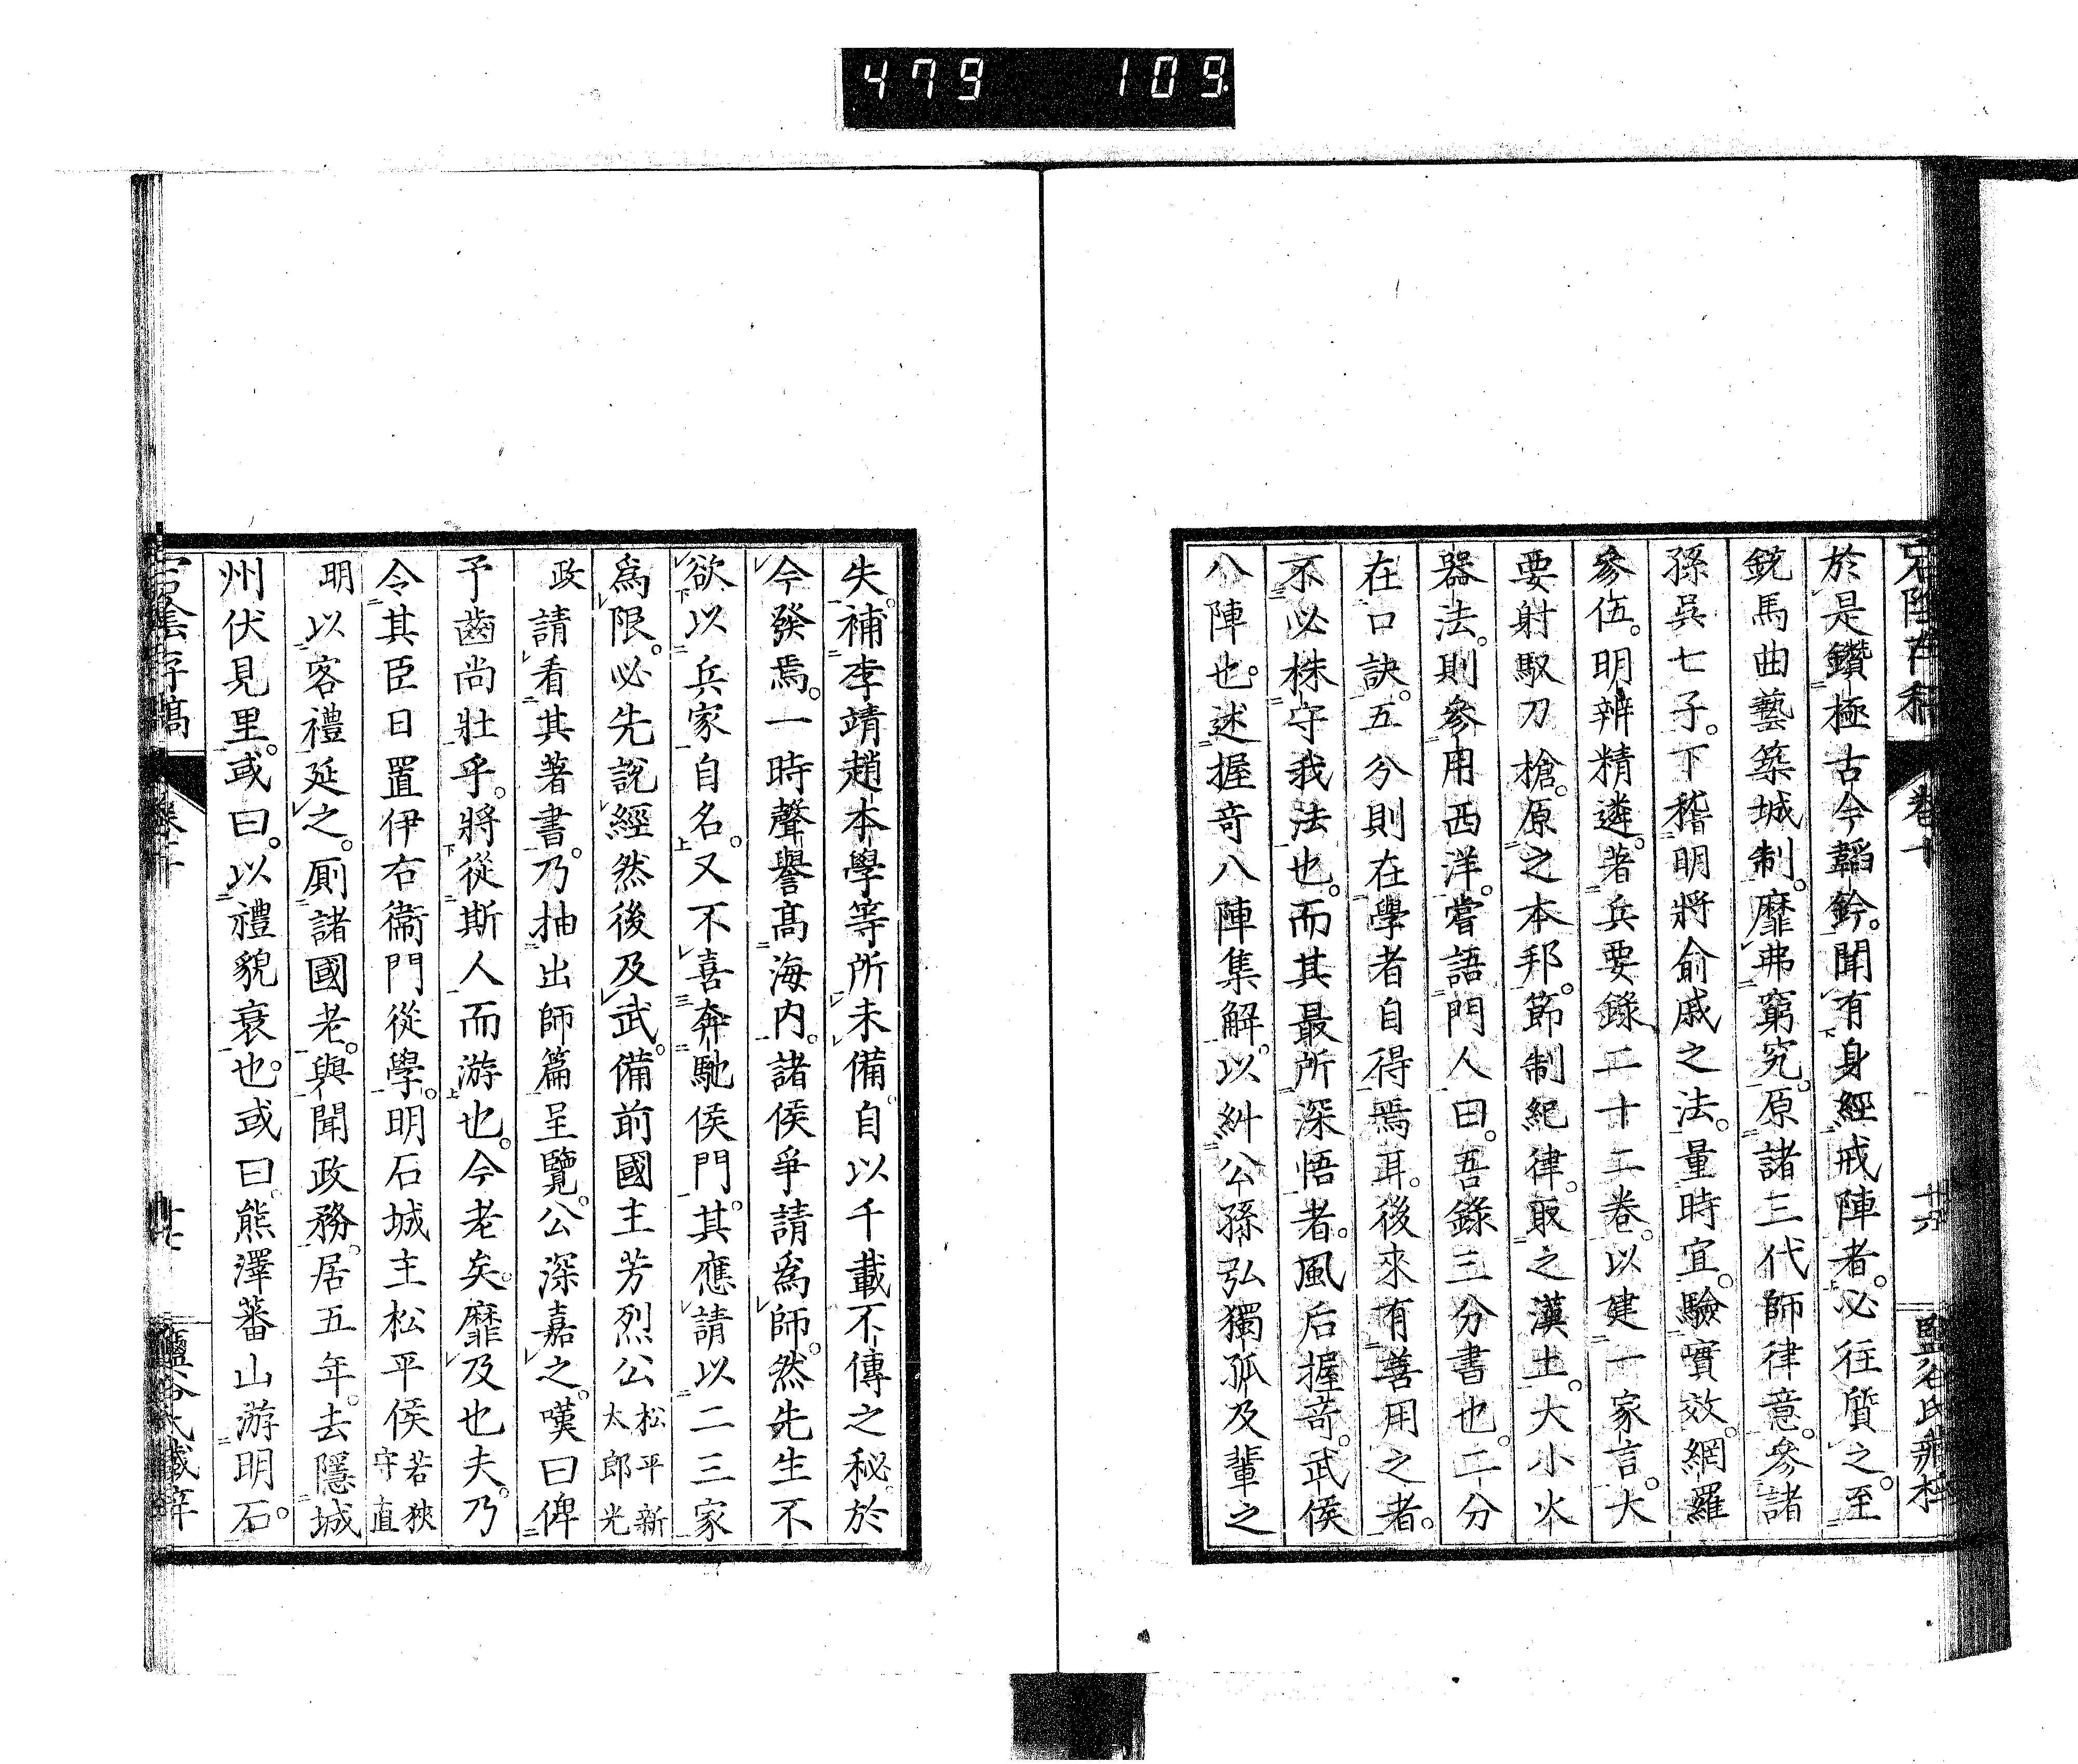 479 109
於是鑽極古今韜鈐。聞有身經戒陣者。必往質之。至
銃馬曲藝築城制。靡弗窮究。原諸三代師律意。參諸
孫吳七子。下稽明將俞戚之法。量時宜。驗實效。網羅
參伍。明辨精遴。著兵要錄二十二卷。以建一家言。大
要射馭刀槍。原之本邦。節制紀律。取之漢土。大小火
器法。則參用西洋。嘗語門人曰。吾錄三分書也。二分
在口訣。五分則在學者自得焉耳。後來有善用之者。
不必株守我法也。而其最所深悟者。風后握奇。武侯
八陣也。述握奇八陣集解。以糾公孫弘獨孤及輩之
失。補李靖趙本學等所未備。自以千載不傳之秘於
今發焉。一時聲譽高海內。諸侯爭請爲師。然先生不
欲以兵家自名。又不喜奔馳侯門。其應請以二三家
爲限。必先說經然後及武。備前國主芳烈公松平新太郎光
政請看其著書。乃抽出師篇呈覽。公深嘉之。嘆曰俾
予齒尚壯乎。將從斯人而游也。今老矣。靡及也夫。乃
令其臣日置伊右衞門從學。明石城主松平侯若狹守直
明以客禮延之。厠諸國老。與聞政務。居五年。去隱城
州伏見里。或曰。以禮貌衰也。或曰熊澤蕃山游明石。
宕陰存稿 卷十 十七 鹽谷氏藏梓